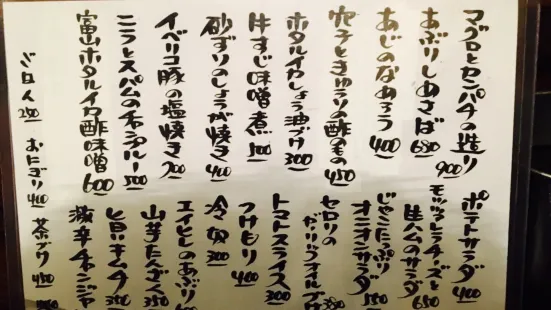 マグロとカンパチの造り 900
あぶりしめさば 680
あじのなめろう 400
穴子ときゅうりの酢のもの 450
ホタルイカしょう油づけ 300
牛すじ味噌煮 500
砂ずりのしょうが焼き 400
イベリコ豚の塩焼き 700
ニラとスパムのチャンプルー 500
富山ホタルイカ酢味噌 600
ポテトサラダ 400
モッツァレラチーズと
生ハムのサラダ 650
じゃこたっぷり
オニオンサラダ 550
セロリの
ガーリックフォルテ 380
トマトスライス 300
つけもり 400
冷奴 300
エイヒレのあぶり
山芋たんざく 350
旨いキムチ 350
激辛チャンジャ
おにぎり 400
茶ヅケ 450